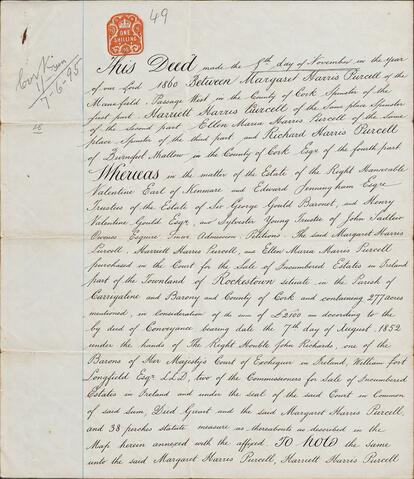 49
ONE
SHILLING
7-6-95
This Deed made the 8th day of November in the year
of our Lord 1860 Between Margaret Harris Purcell of the
Manefield, Passage West in the County of Cork Spinster of the
first part Harriett Harris Purcell of the Same place Spinster
of the second part Ellen Maria Harris Purcell of the same
place Spinster of the third part and Richard Harris Purcell
of Mallow in the County of Cork Esqr of the fourth part
Whereas in the matter of the Estate of the Right Honorable
Valentine Earl of Kenmare and Edward Jenningham Esqre
Trustees of the Estate of Sir George Gould Baronet, and Henry
Valentine Gould Esqr and Sylvester Young Trustee of John Sadleir
Owners, Esquire Admission Petitions. The said Margaret Harris
Purcell, Harriett Harris Purcell, and Ellen Maria Harris Purcell
purchased in the Court for the Sale of Incumbered Estates in Ireland
part of the Townland of Rockestown situate in the Parish of
Carrigaline and Barony and County of Cork and containing 277 acres
mentioned, in consideration of the sum of £2100 as according to the
by deed of Conveyance bearing date the 7th day of August 1852
under the hands of The Right Honble John Richards, one of the
Barons of Her Majesty's Court of Exchequer in Ireland, William
Longfield Esqr L.L.D, two of the Commissioners for Sale of Incumbered
Estates in Ireland and under the seal of the said Court in Common
of said Sum, Deed Grant and the said Margaret Harris Purcell,
and 38 perches statute measure as thereabouts as described in the
Map herein annexed with the affixed. To hold the same
unto the said Margaret Harris Purcell, Harriett Harris Purcell